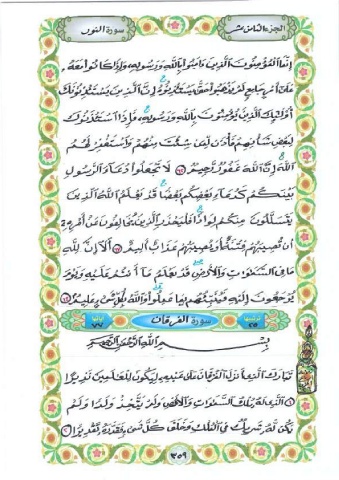 الجزء الثامن عشر
سورة النور
إنما المؤمنون الذين ءامنوا بالله ورسوله وإذا كانوا معه
على أمر جامع لم يذهبوا حتى يستئذنوه إن الذين يستئذنونك
أولئك الذين يؤمنون بالله ورسوله فإذا استئذنوك
لبعض شأنهم فأذن لمن شئت منهم واستغفر لهم
الله إن الله غفور رحيم ٦٢ لا تجعلوا دعاء الرسول
بينكم كدعاء بعضكم بعضا قد يعلم الله الذين
يتسللون منكم لواذا فليحذر الذين يخالفون عن أمره
أن تصيبهم فتنة أو يصيبهم عذاب أليم ٦٣ ألا إن لله
ما في السماوات والأرض قد يعلم ما أنتم عليه ويوم
يرجعون إليه فينبئهم بما عملوا والله بكل شيء عليم ٦٤
ترتيبها ٢٥
سورة الفرقان
آياتها ٧٧
بسم الله الرحمن الرحيم
تبارك الذي نزل الفرقان على عبده ليكون للعالمين نذيرا
١ الذي له ملك السماوات والأرض ولم يتخذ ولدا ولم
يكن له شريك في الملك وخلق كل شيء فقدره تقديرا ٢
٣٥٩